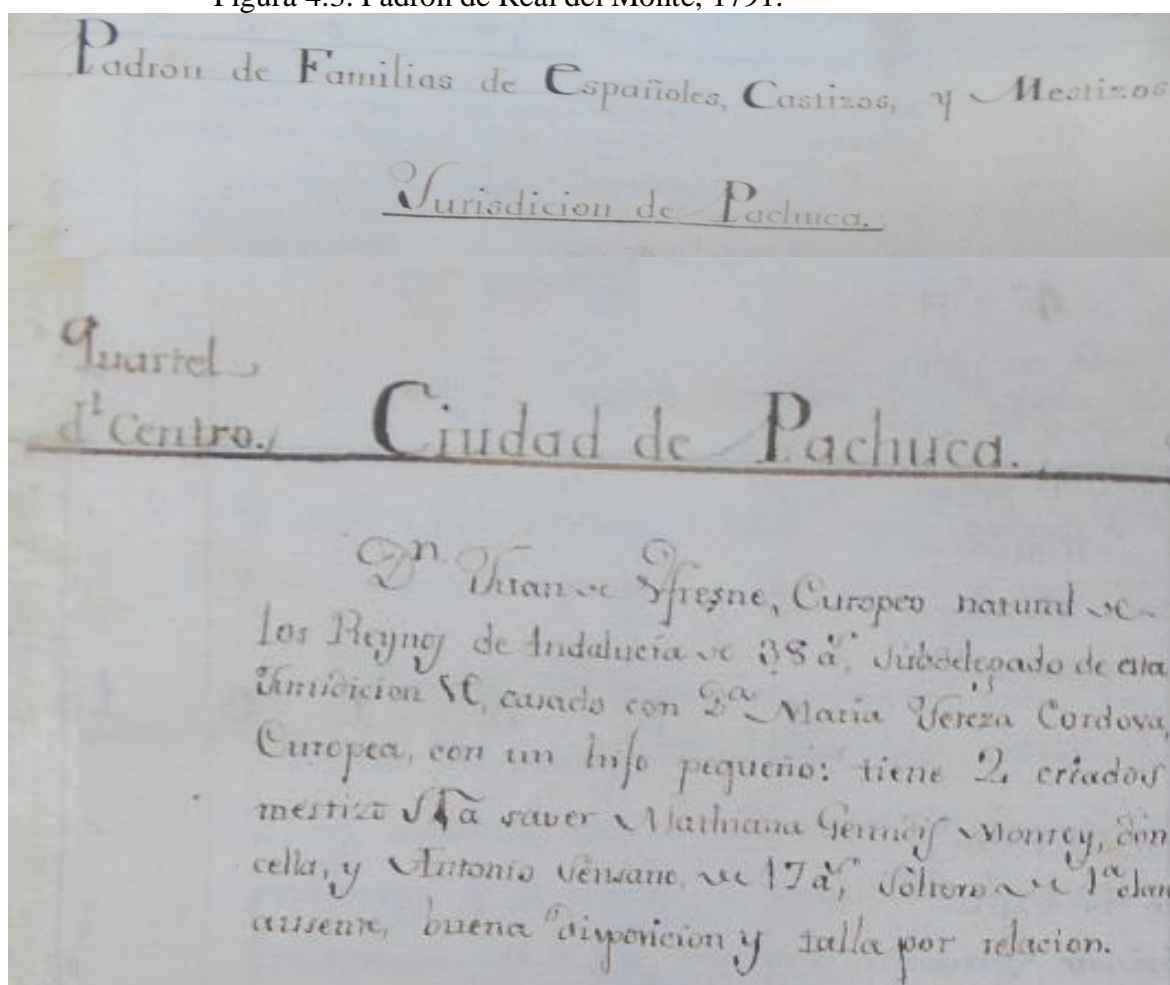 Figura 4.3. Padrón de Real del Monte, 1791.
Padron de Familias de Españoles, Castizos, y Mestizos
Jurisdicion de Pachuca.
Quartel
dl Centro. Ciudad de Pachuca.
Dn Juan de Yfresne, Europeo natural de
los Reynos de Andalucia de 38 as, subdelegado de esta
Jurisdicion, casado con Da Maria Tereza Cordova,
Europea, con un hijo pequeño: tiene 2 criados
mestizos à saver Monroy, don
cella, y Antonio de 17 as, soltero de 1a clase
ausente, buena disposicion y talla por relacion.